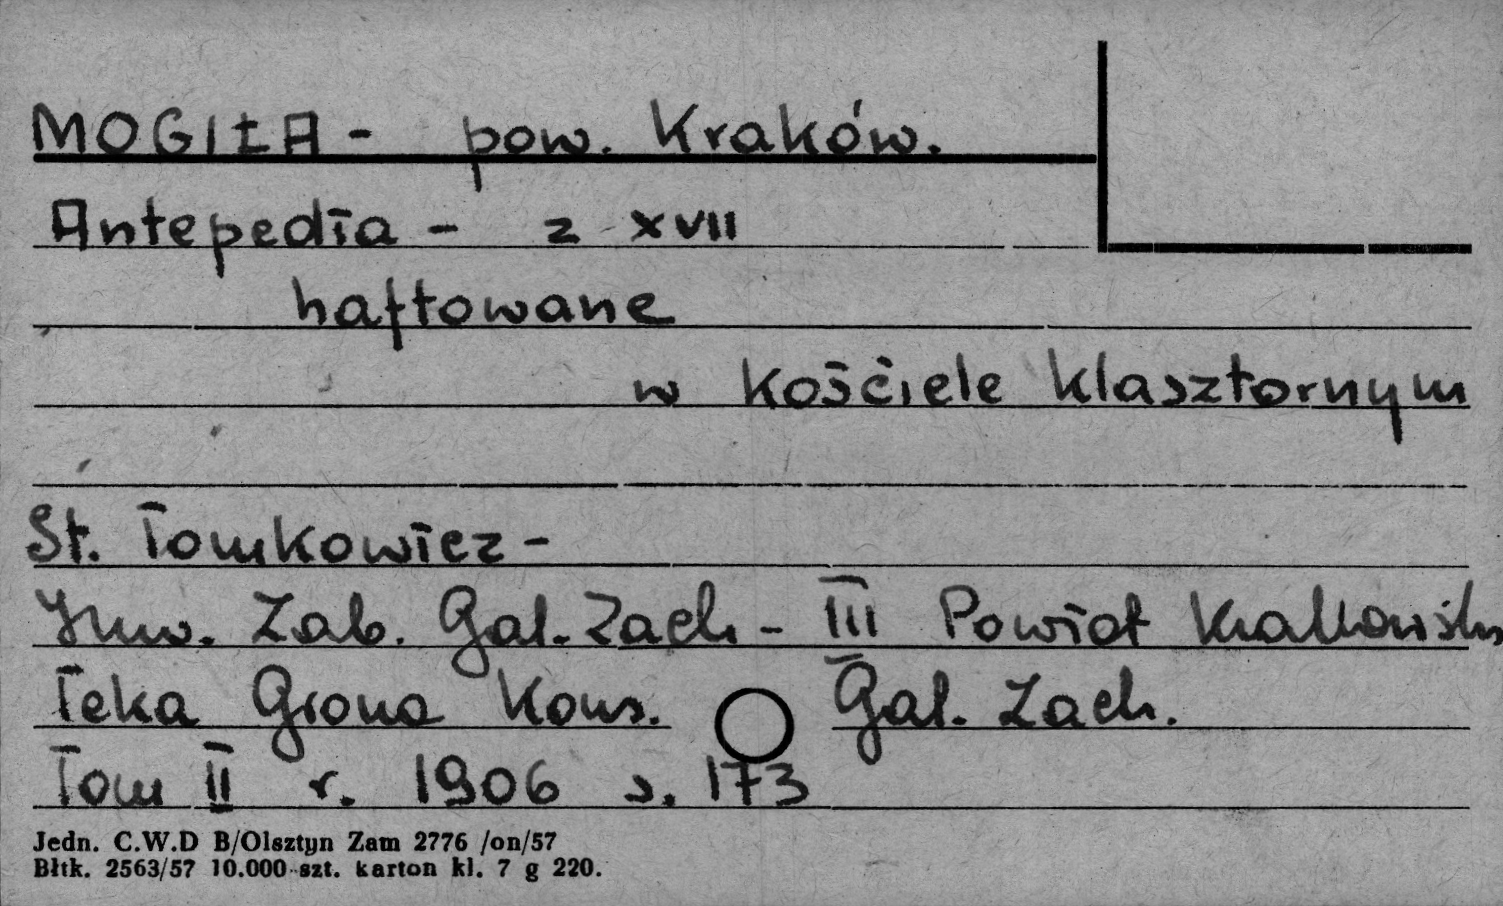 MOGIŁA - pow. Kraków.
Antepedia - z XVII
haftowane
w Kościele klasztornym
St. Tomkowicz -
Inw. Zab. Gal. Zach - III Powiat Krakowski
Teka Grona Kons. Gal. Zach.
Tom II r. 1906 s. 173
Jedn. C.W.D B/Olsztyn Zam 2776 /on/57
Błtk. 2563/57 10.000 szt. karton kl. 7 g 220.